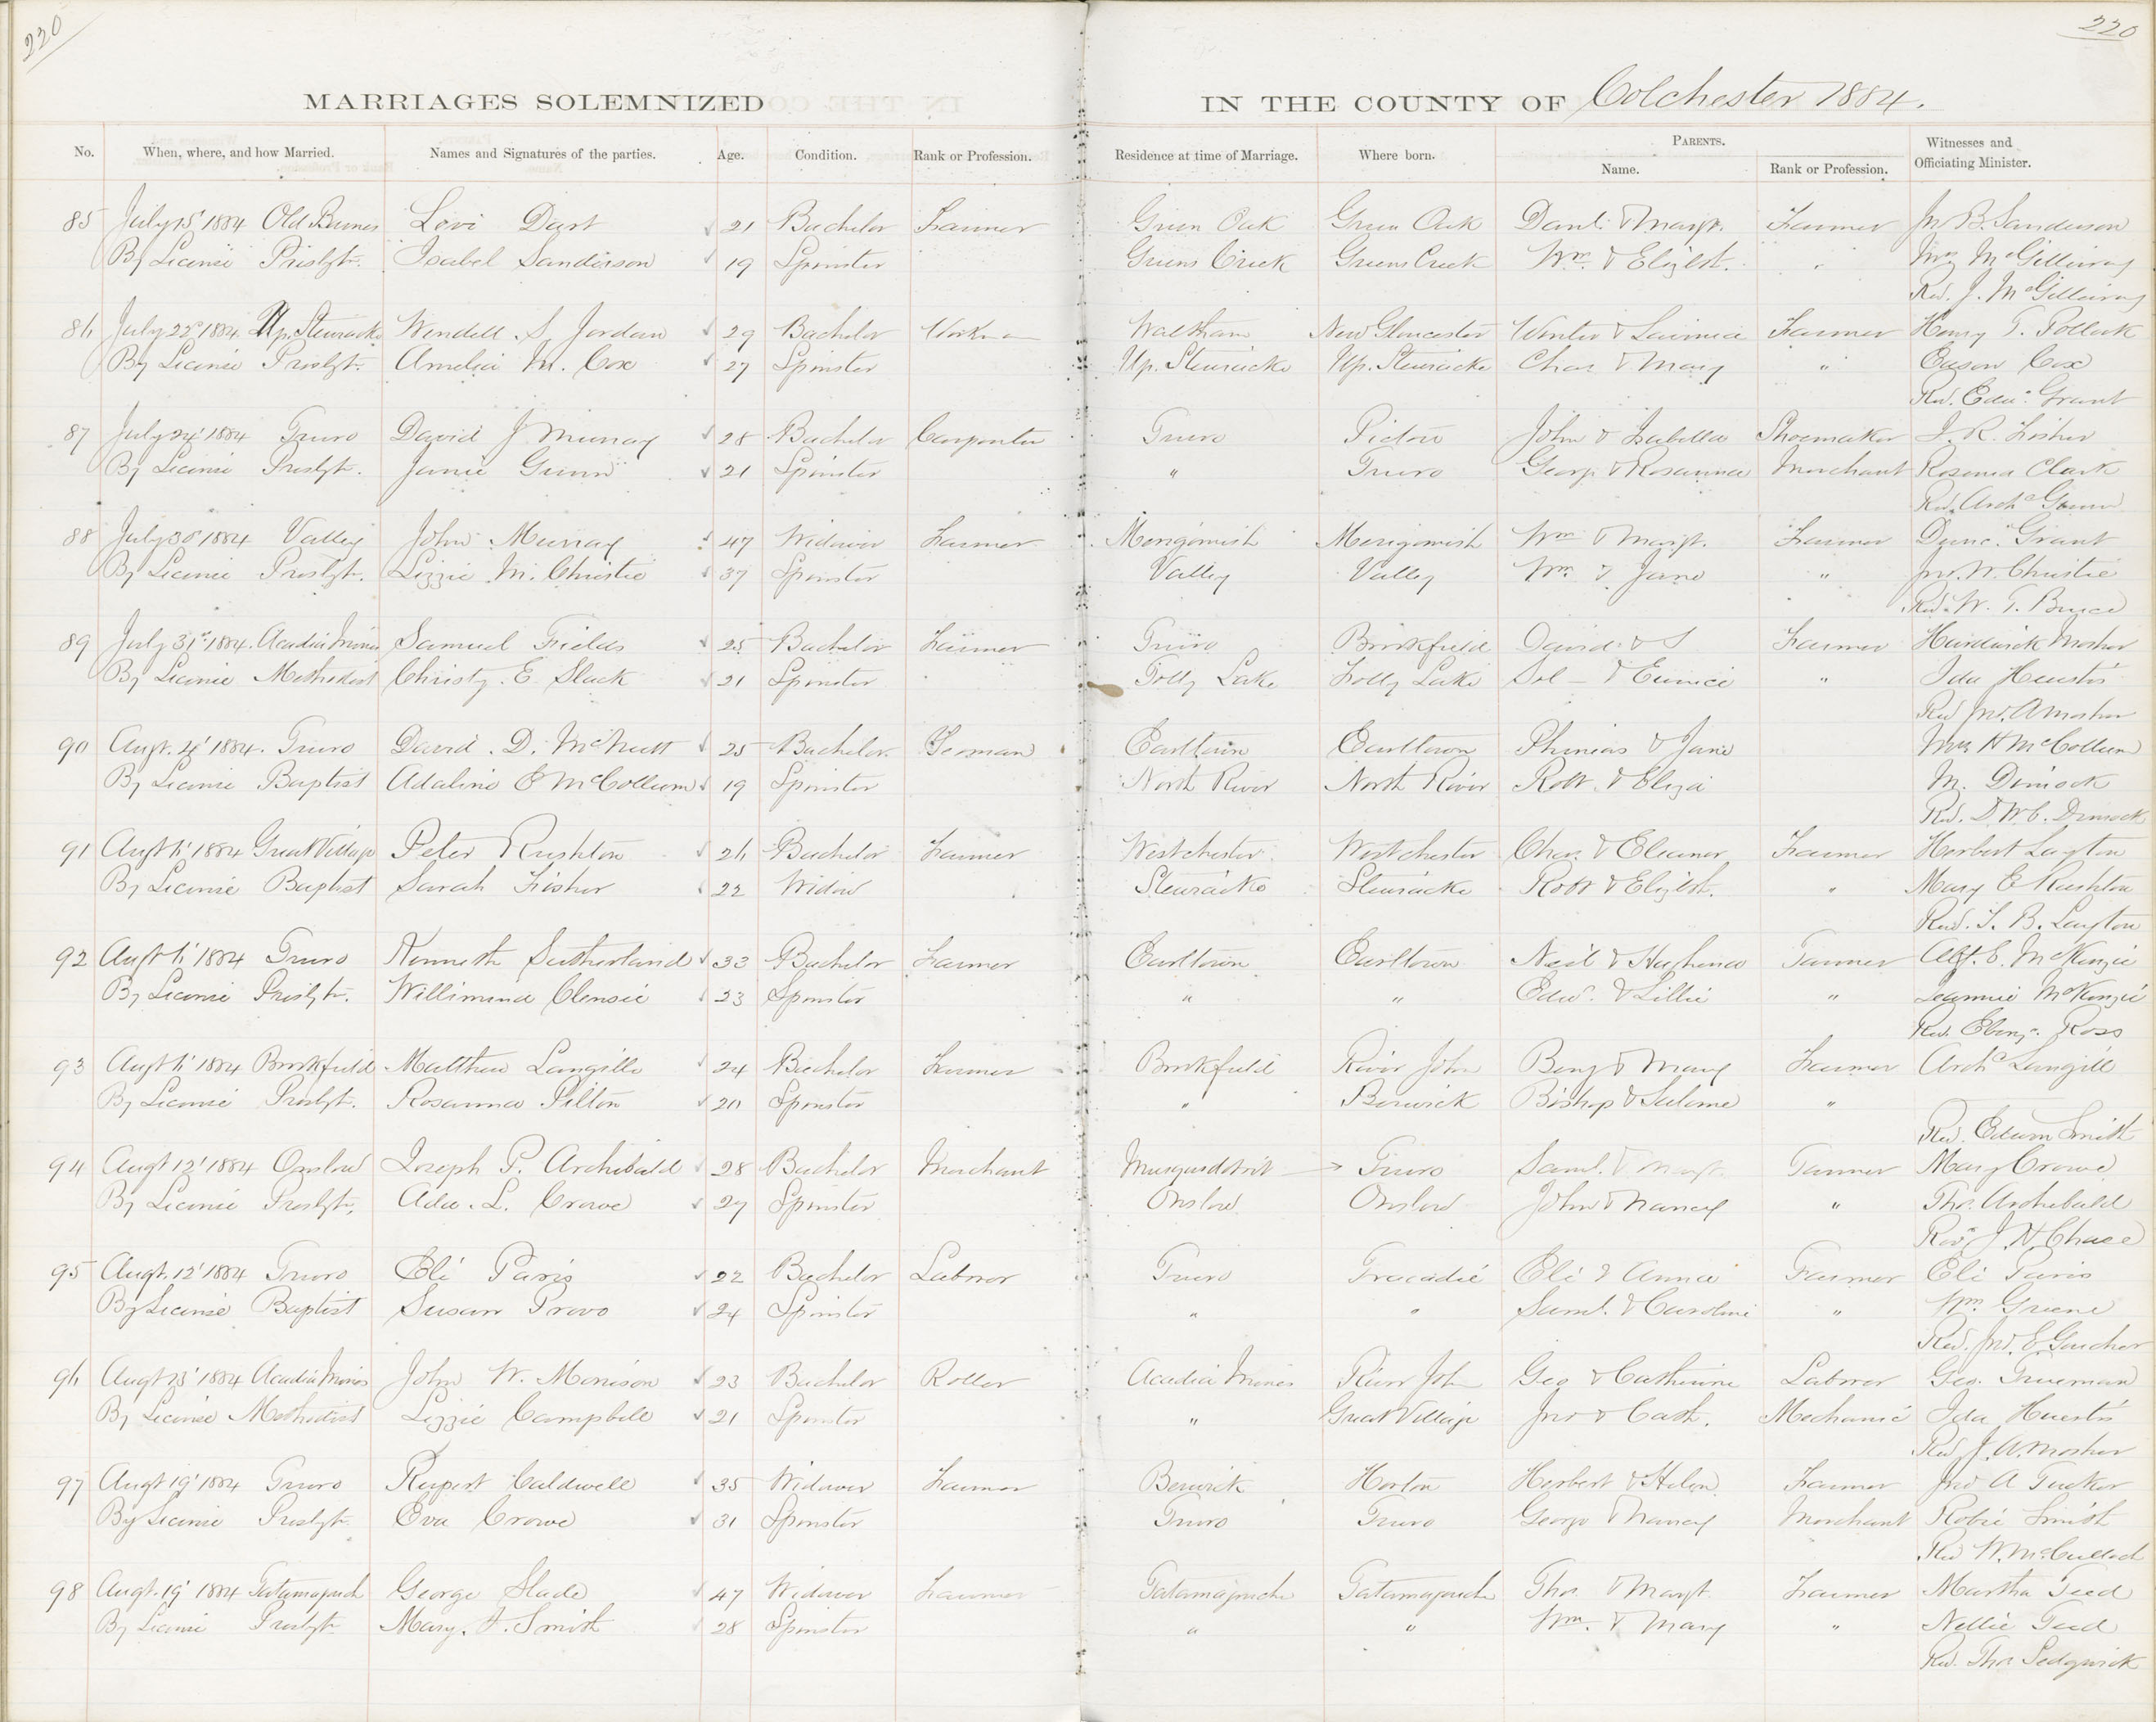 220
220
MARRIAGES SOLEMNIZED IN THE COUNTY OF Colchester 1884.
No. When, where, and how Married. Names and Signatures of the parties. Age. Condition. Rank or Profession. Residence at time of Marriage. Where born. PARENTS. Name. Rank or Profession. Witnesses and Officiating Minister.
85 July 15' 1884 Old Barnes Levi Dart 21 Bachelor Farmer Green Oak Green Oak Danl. & Margt. Farmer Jn B. Sanderson
By License Presbytr. Isabel Sanderson 19 Spinster Greens Creek Greens Creek Wm. & Elizbt. " McGillivray
Rev. J. McGillivray
86 July 22d 1884 Up. Stewiacke Wendell S. Jordan 29 Bachelor Waltham New Gloucester & Farmer Henry T. Pollock
By License Presbyt. Amelia M. Cox 27 Spinster Up. Stewiacke Up. Stewiacke Chas & Mary " Eason Cox
Rev. Edwd. Grant
87 July 24' 1884 Truro David J Murray 28 Bachelor Carpenter Truro Pictou John & Isabella Shoemaker J. R. Fisher
By License Presbyt. Janie Gunn 21 Spinster " Truro George & Rosanna Merchant Clark
Rev. Archd Gunn
88 July 30' 1884 Valley John Murray 47 Widower Farmer Merigomish Merigomish Wm & Margt. Farmer Dunc. Grant
By License Presbyt. Lizzie M. Christie 37 Spinster Valley Valley Wm. & Jane " Jno. W. Christie
Rev. W. T. Bruce
89 July 31st 1884. Acadia Mines Samuel Fields 25 Bachelor Farmer Truro Brookfield David & S Farmer Hardwick Mosher
By License Methodist Christy. E. Slack 21 Spinster Folly Lake Folly Lake Sol - & Eunice " Ida Huestis
Rev Jno. A Mosher
90 Augt. 4' 1884. Truro David. D. McNutt 25 Bachelor. Yeoman Earltown Earltown Phineas & Jane H McCollum
By License Baptist Adaline E McCollum 19 Spinster North River North River Robt. & Eliza M. Dimock
Rev. D. W. C. Dimock
91 Augt 6' 1884 Great Village Peter Rushton 26 Bachelor Farmer Westchester Westchester Chas. & Eleanor Farmer Herbert Layton
By License Baptist Sarah Fisher 22 Widow Stewiacke Stewiacke Robt & Elizbth. " Mary E Rushton
Rev. T. B. Layton
92 Augt 6' 1884 Truro Kenneth Sutherland 33 Bachelor Farmer Earltown Earltown Neil & Hughena Farmer Alf. E. McKenzie
By License Presbytr. Willimina 23 Spinster " " Edw. & Lillie " Jeannie McKenzie
Rev. Ebenzr. Ross
93 Augt 6' 1884 Brookfield Matthew Langille 24 Bachelor Farmer Brookfield River John Benj & Mary Farmer Archd Langill
By License Presbyt. Rosanna Pilton 20 Spinster " Berwick Bishop & Salome "
Rev. Edwin Smith
94 Augt 12' 1884 Onslow Joseph P. Archibald 28 Bachelor Merchant Musquodoboit Truro Saml. & Margt. Farmer Mary Crowe
By License Presbytr. Ada. L. Crowe 27 Spinster Onslow Onslow John & Nancy " Thos. Archibald
Revd J. H Chase
95 Augt. 12' 1884 Truro Eli Paris 22 Bachelor Labrror Truro Tracadie Eli & Anna Farmer Eli Paris
By License Baptist Susan Provo 24 Spinster " " Saml. & Caroline " Wm Greene
Rev. Jno. E. Goucher
96 Augt 13' 1884 Acadia Mines John W. Morrison 23 Bachelor Roller Acadia Mines River John Geo & Catherine Labrror Geo. Trueman
By License Methodist Lizzie Campbell 21 Spinster " Great Village Jno & Cath. Mechanic Ida Huestis
Rev J. A. Mosher
97 Augt 19' 1884 Truro Rupert Caldwell 35 Widower Farmer Berwick Horton Herbert & Helen Farmer Jno A Tucker
By License Presbyt. Eva Crowe 31 Spinster Truro Truro George & Nancy Merchant Robie Smith
Rev W. McCulloch
98 Augt. 19' 1884 Tatamagouch George Slade 47 Widower Farmer Tatamagouche Tatamagouche Thos. & Margt. Farmer Martha Teed
By License Presbyt. Mary. J. Smith 28 Spinster " " Wm. & Mary " Nellie Teed
Rev. Thos Sedgwick